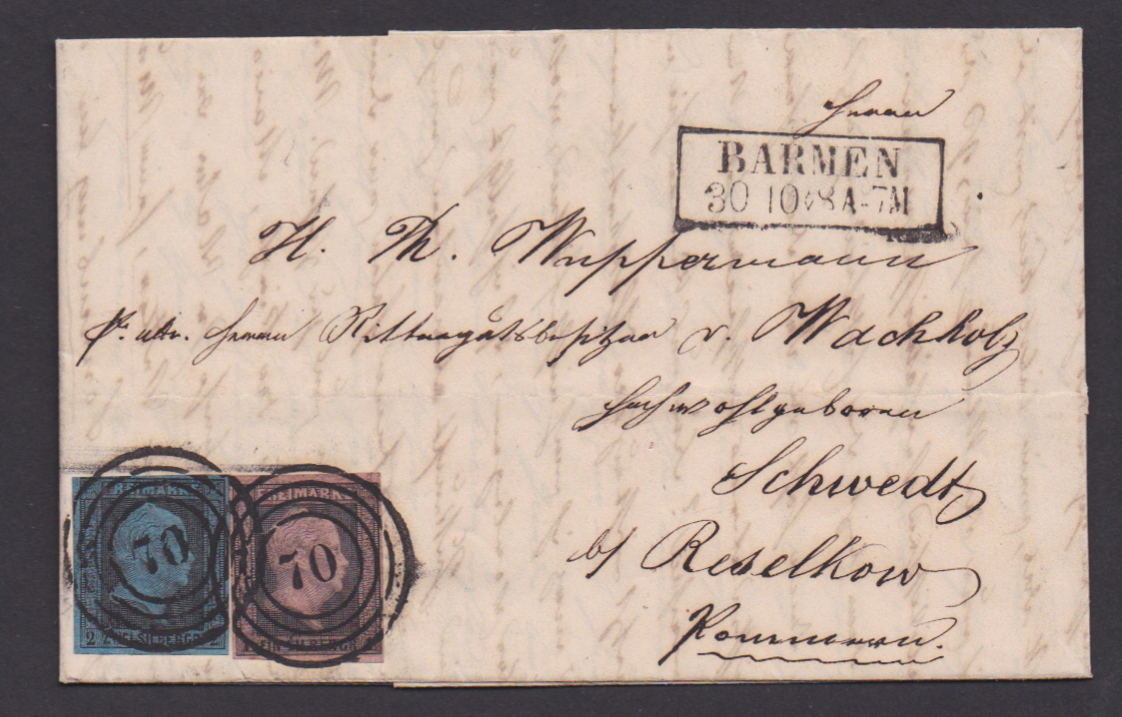 Herrn
BARMEN
30 10 8 A-7M
H. Th. Wuppermann
Herrn Rittergutsbesitzer v. Wachholz
Hochwohlgeboren
Schwedt
b/ Reselkow
Pommern.
FREIMARKE
70
2 ZWEI SILBERGR. 2
FREIMARKE
70
EIN SILBERGR.